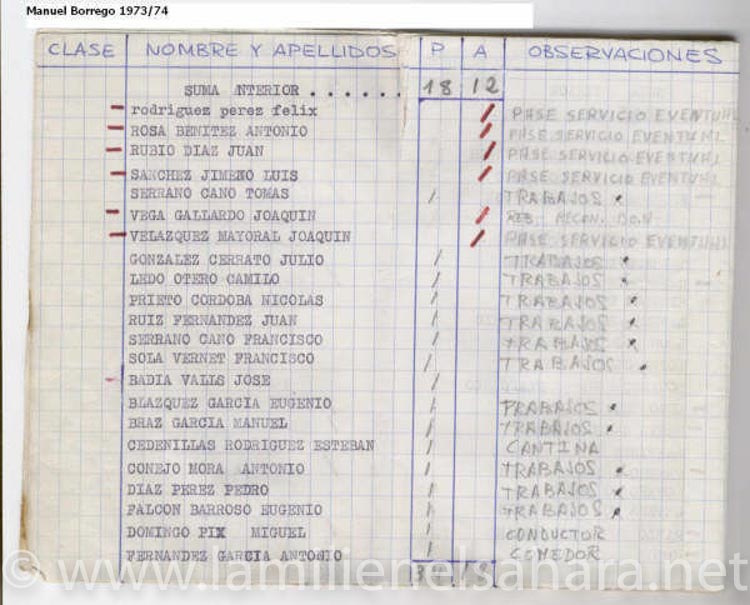 Manuel Borrego 1973/74
CLASE NOMBRE Y APELLIDOS P A OBSERVACIONES
SUMA ANTERIOR . . . . . . 18 12
rodriguez perez felix / PASE SERVICIO EVENTUAL
ROSA BENITEZ ANTONIO / PASE SERVICIO EVENTUAL
RUBIO DIAZ JUAN / PASE SERVICIO EVENTUAL
SANCHEZ JIMENO LUIS / PASE SERVICIO EVENTUAL
SERRANO CANO TOMAS / TRABAJOS
VEGA GALLARDO JOAQUIN / REB.
VELAZQUEZ MAYORAL JOAQUIN / PASE SERVICIO EVENTUAL
GONZALEZ CERRATO JULIO / TRABAJOS
LEDO OTERO CAMILO / TRABAJOS
PRIETO CORDOBA NICOLAS / TRABAJOS
RUIZ FERNANDEZ JUAN / TRABAJOS
SERRANO CANO FRANCISCO / TRABAJOS
SOLA VERNET FRANCISCO / TRABAJOS
BADIA VALLS JOSE /
BLAZQUEZ GARCIA EUGENIO / TRABAJOS
BRAZ GARCIA MANUEL / TRABAJOS
CEDENILLAS RODRIGUEZ ESTEBAN / CANTINA
CONEJO MORA ANTONIO / TRABAJOS
DIAZ PEREZ PEDRO / TRABAJOS
FALCON BARROSO EUGENIO / TRABAJOS
DOMINGO PIX MIGUEL / CONDUCTOR
FERNANDEZ GARCIA ANTONIO / COMEDOR
© www.lamilienelsahara.net